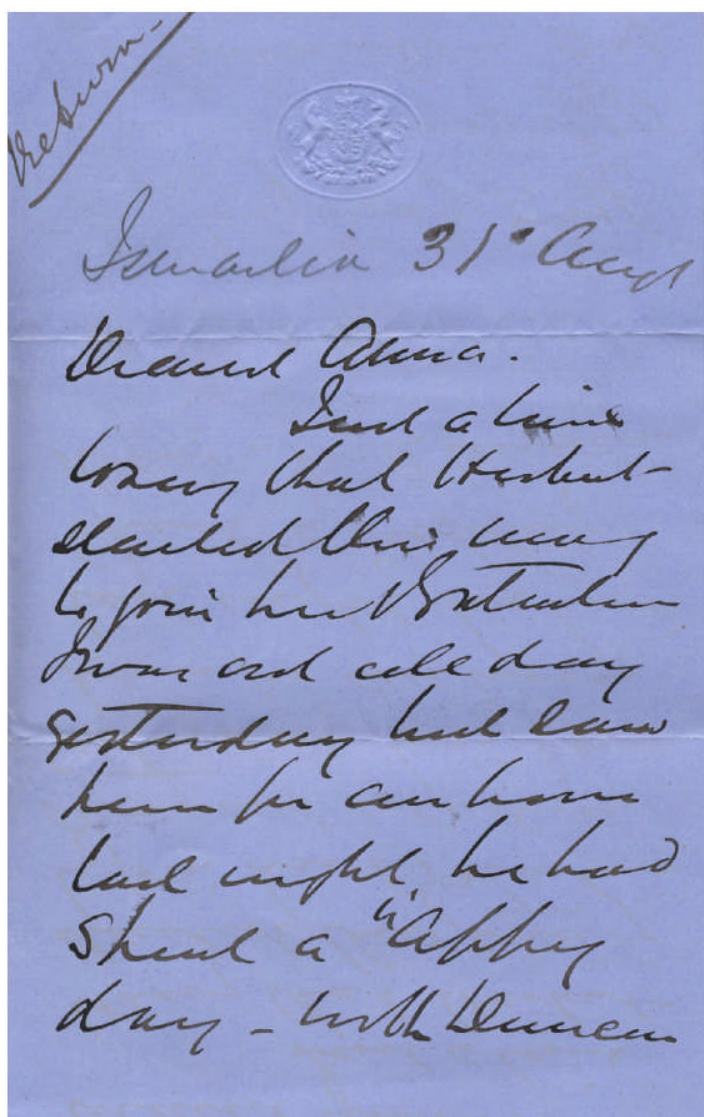 Return -
Ismailia 31st Augt
Dearest Anna.
Just a line
to say that Herbert
started this mg
to join his Battalion
I was out all day
yesterday but saw
him for an hour
last night, he had
spent a "appy
day - with Duncan